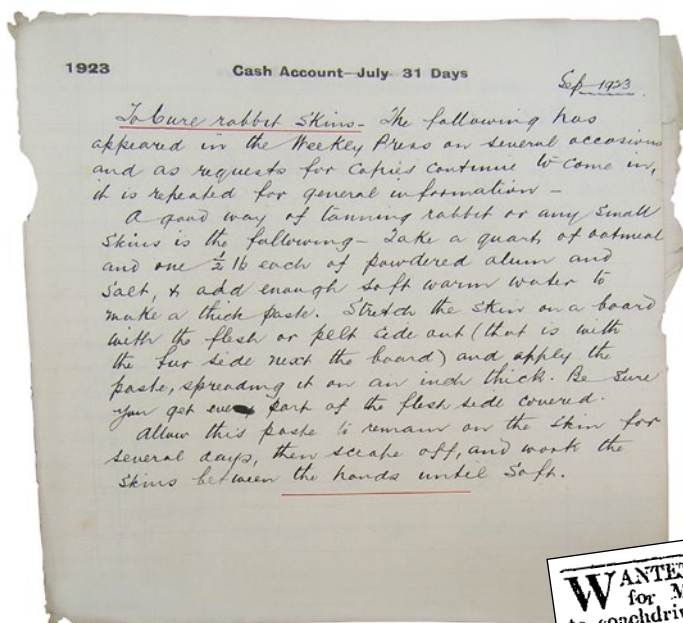 1923
Cash Account—July 31 Days
Sep 1923
To Cure rabbit Skins - The following has
appeared in the Weekly Press on several occasions
and as requests for copies continue to come in,
it is repeated for general information -
A good way of tanning rabbit or any small
Skins is the following - Take a quart of oatmeal
and one ½ lb each of powdered alum and
Salt, & add enough soft warm water to
make a thick paste. Stretch the Skin on a board
with the flesh or pelt side out (that is with
the fur side next the board) and apply the
paste, spreading it on an inch thick. Be Sure
you get every part of the flesh side covered.
Allow this paste to remain on the Skin for
several days, then scrape off, and work the
Skins between the hands until Soft.
WANTE
for M
coachdri